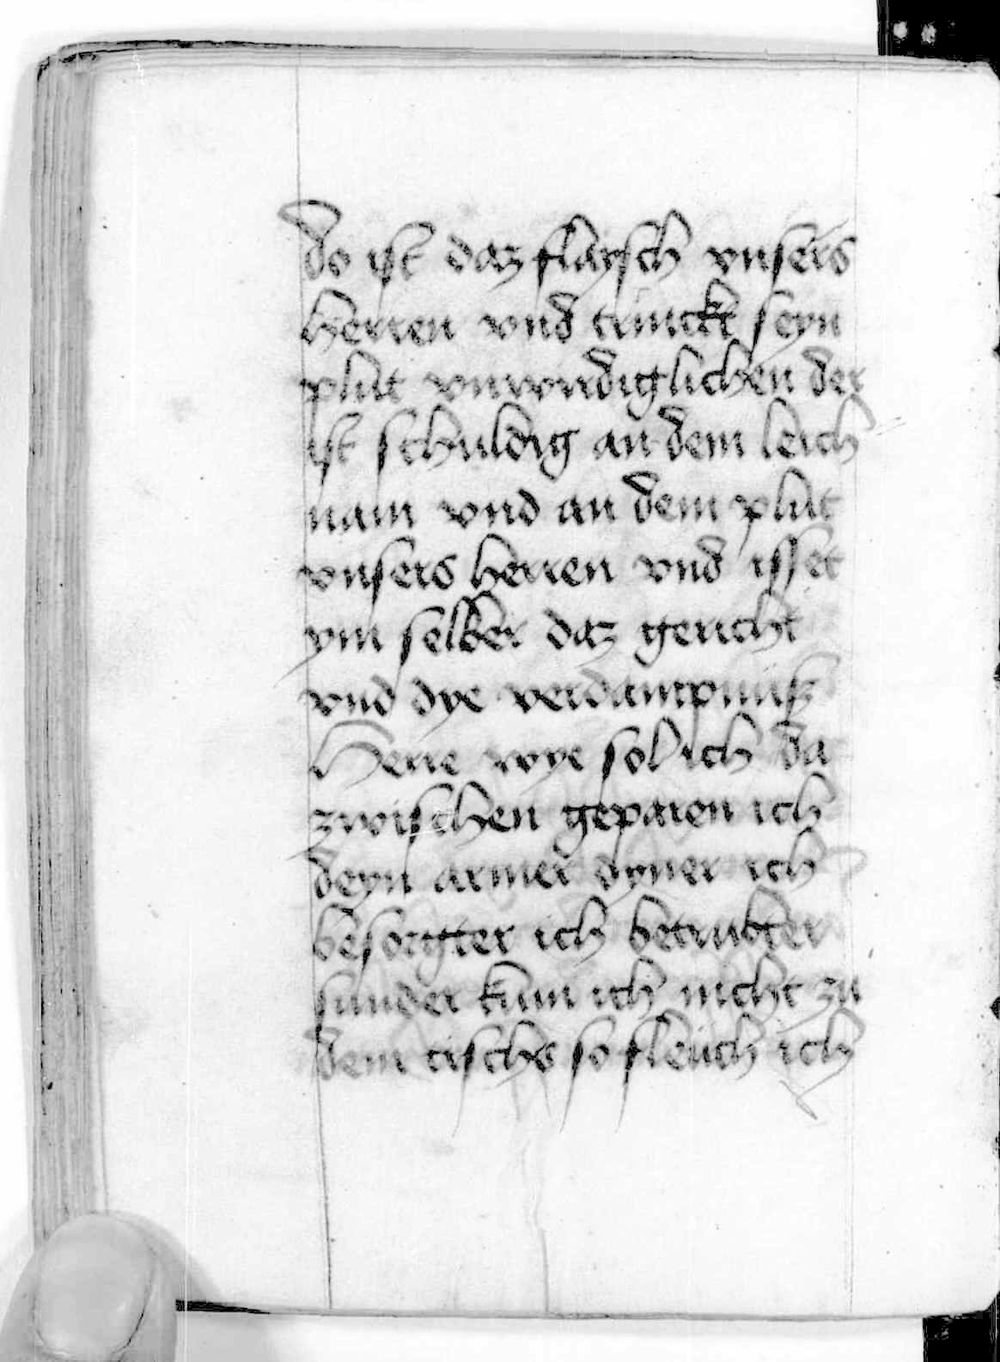 Do ist daz flaysch vnsers
herren vnd trinckt seyn
plut vnwirdiglichen der
ist schuldig an dem leich
nam vnd an dem plut
vnsers herren vnd isset
ym selber daz gericht
vnd dye verdampnuß
Herre wye sol ich da
zwischen geparen ich
deyn armer dyner ich
besorgter ich betrubter
sunder kum ich nicht zu
dem tischs so fleuch ich